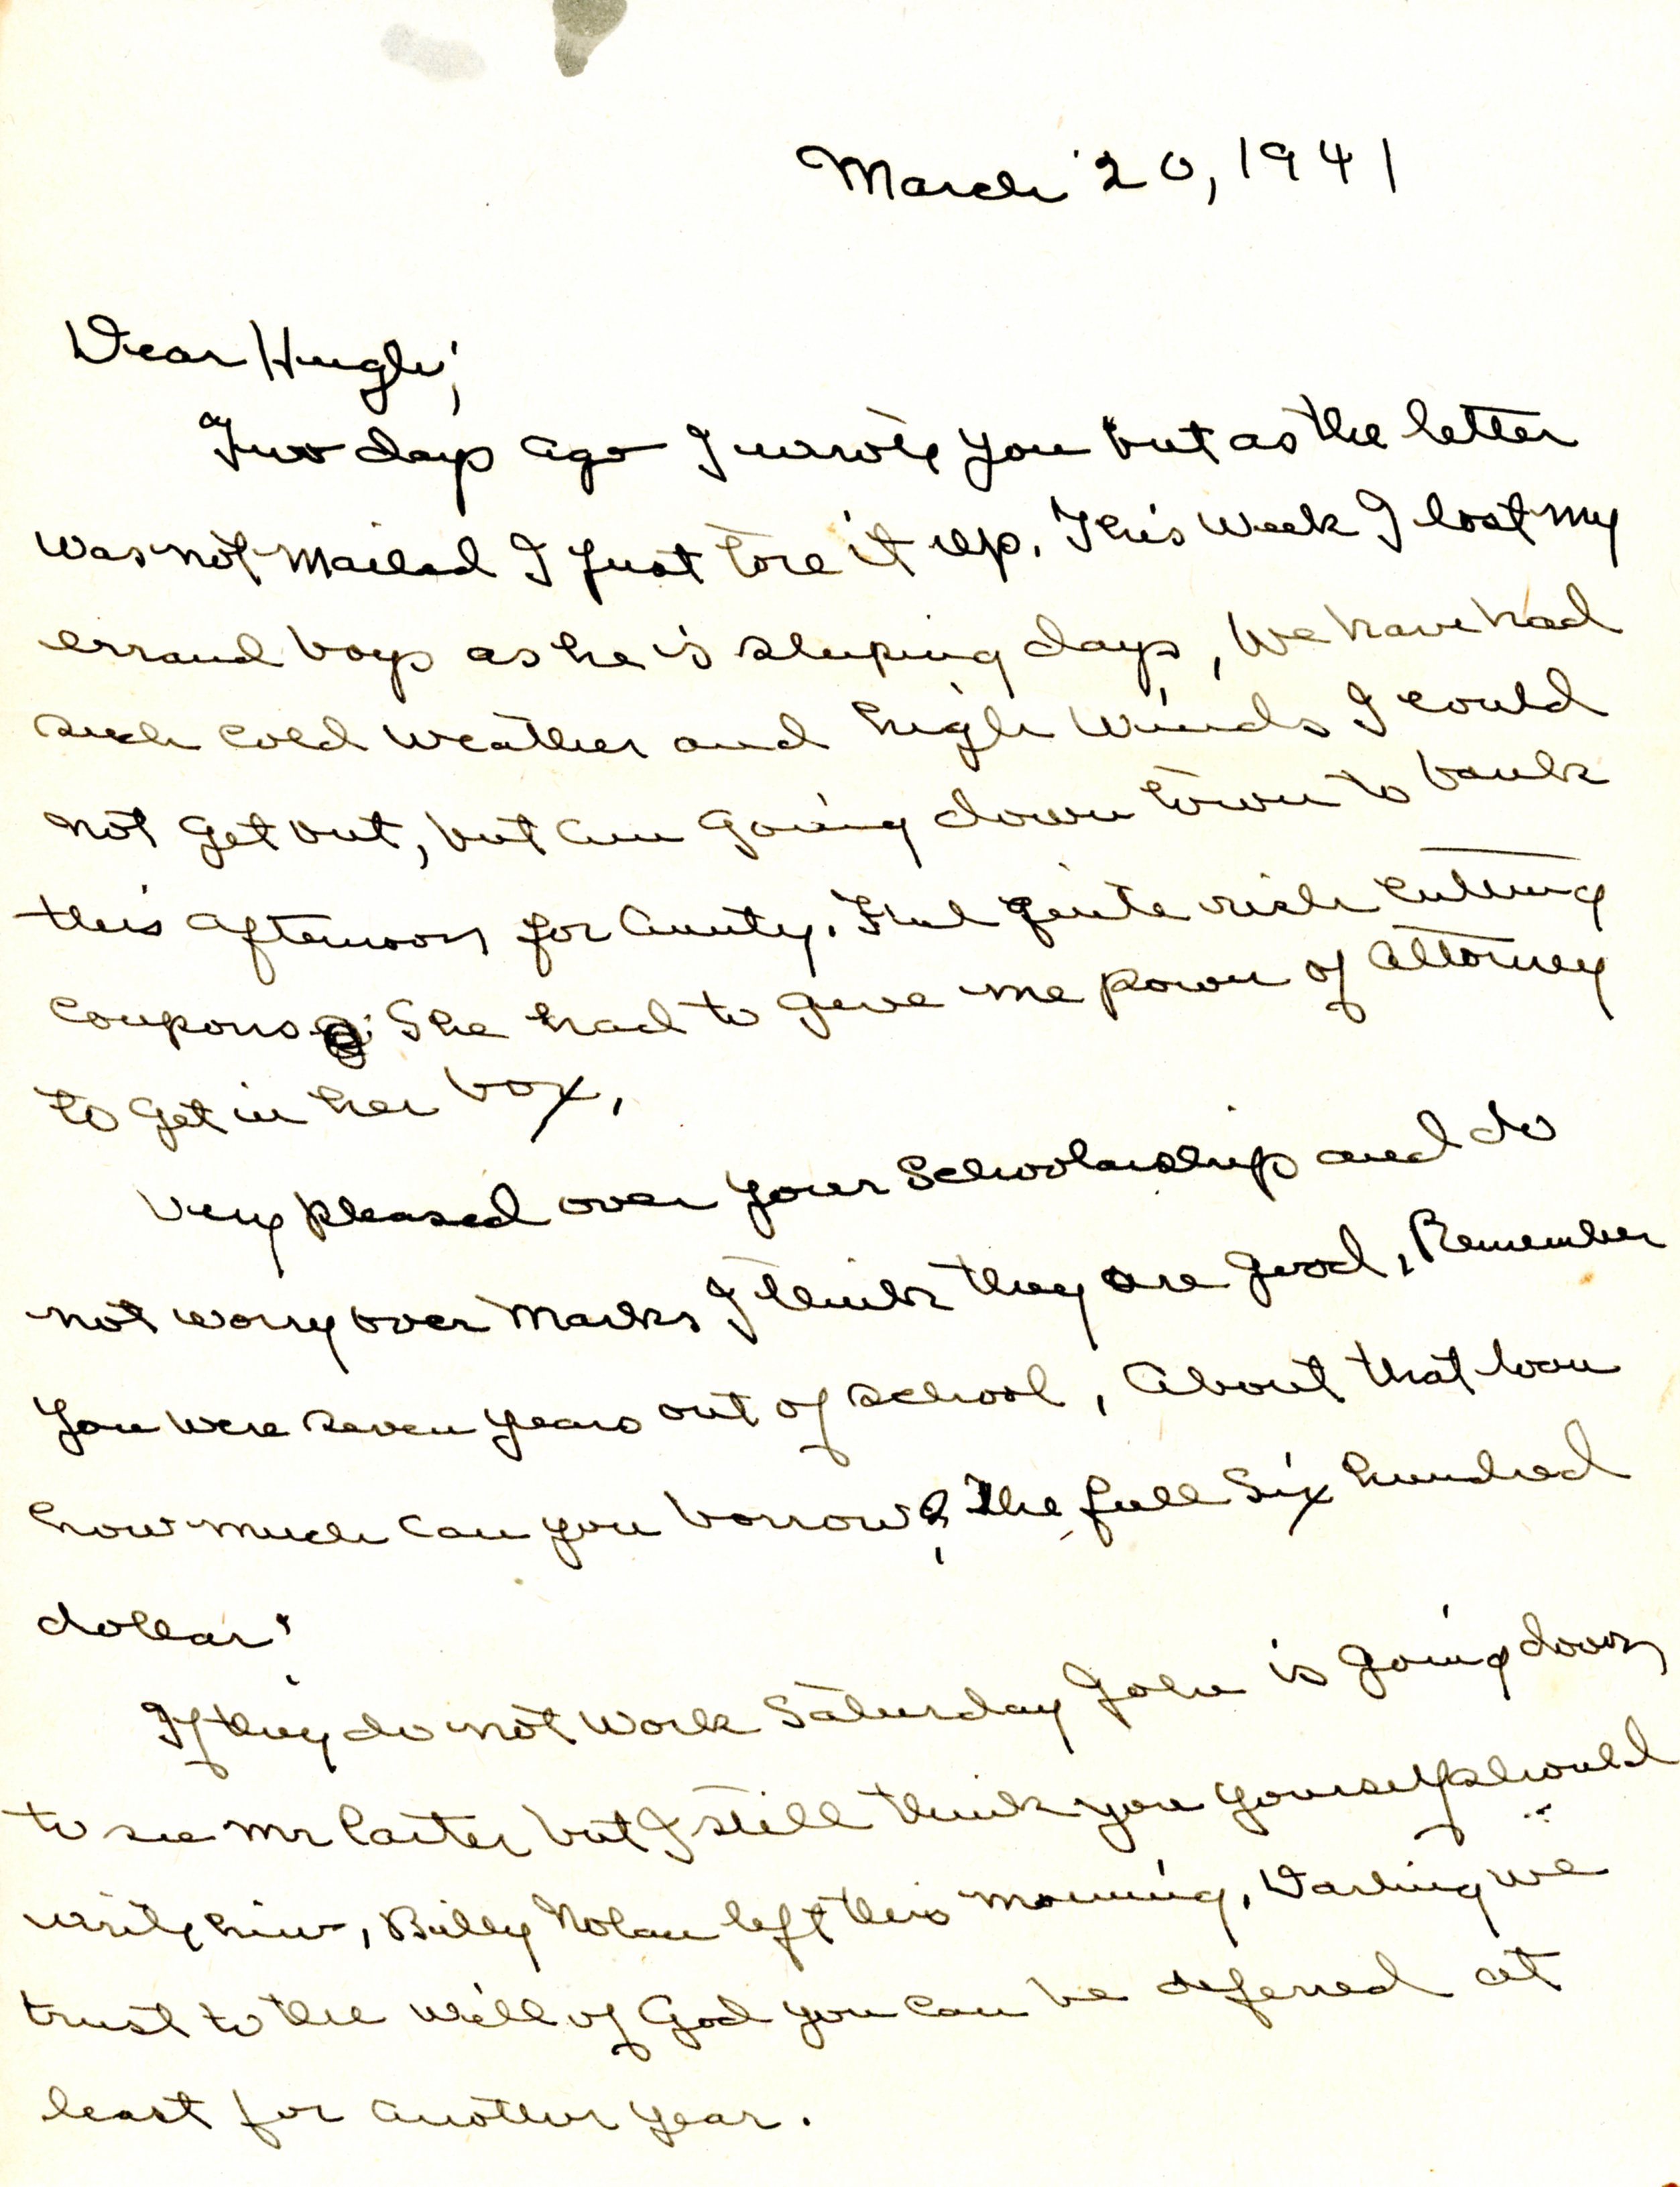 March 20, 1941
Dear Hugh;
Two days ago I wrote you but as the letter
was not mailed I just tore it up. This week I lost my
errand boys as he is sleeping days, We have had
such cold weather and high winds I could
not get out, but am going down town to bank
this afternoon for Aunty. Feel quite rich cutting
coupons. She had to give me power of attorney
to get in her box,
Very pleased over your Schoolarship and do
not worry over marks I think they are good, Remember
you were seven years out of school, About that loan
how much can you borrow? The full six hundred
dollar?
If they do not work Saturday John is going down
to see Mr Carter but I still think you yourself should
write him, Billy Nolan left this morning. Darling we
trust to the will of God you can be deferred at
least for another year.